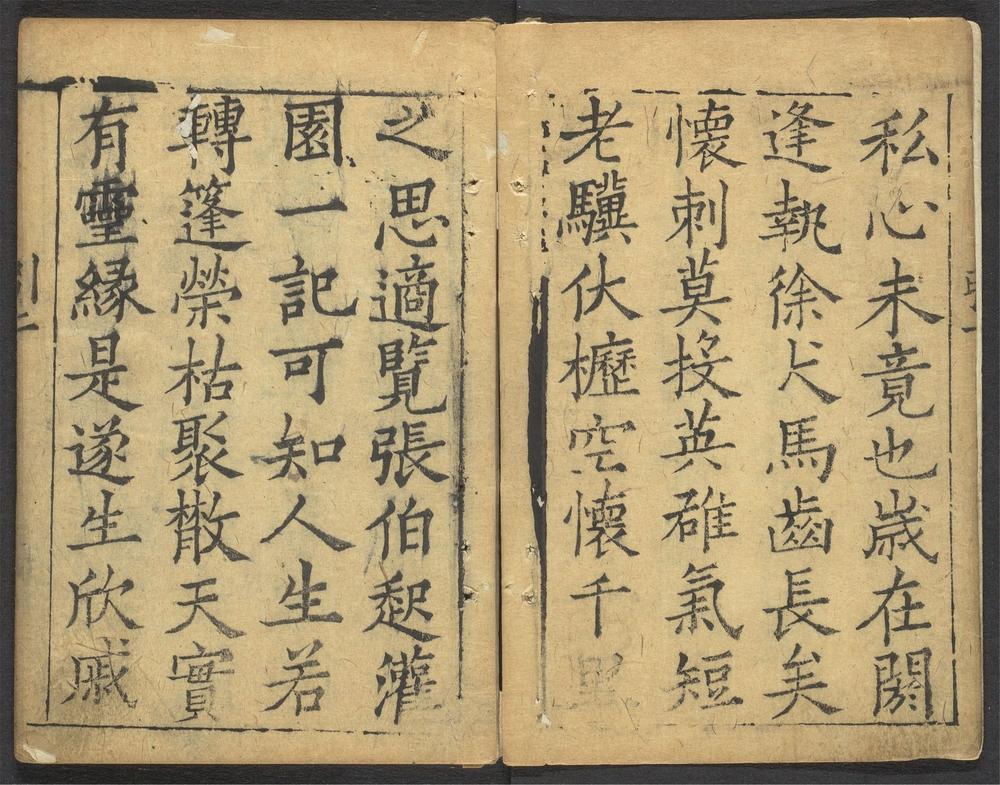 私心未竟也歲在閼
逢執徐犬馬齒長矣
懷刺莫投英雄氣短
老驥伏櫪空懷千里
之思適覽張伯起灌
園一記可知人生若
轉篷榮枯聚散天實
有靈緣是遂生欣戚